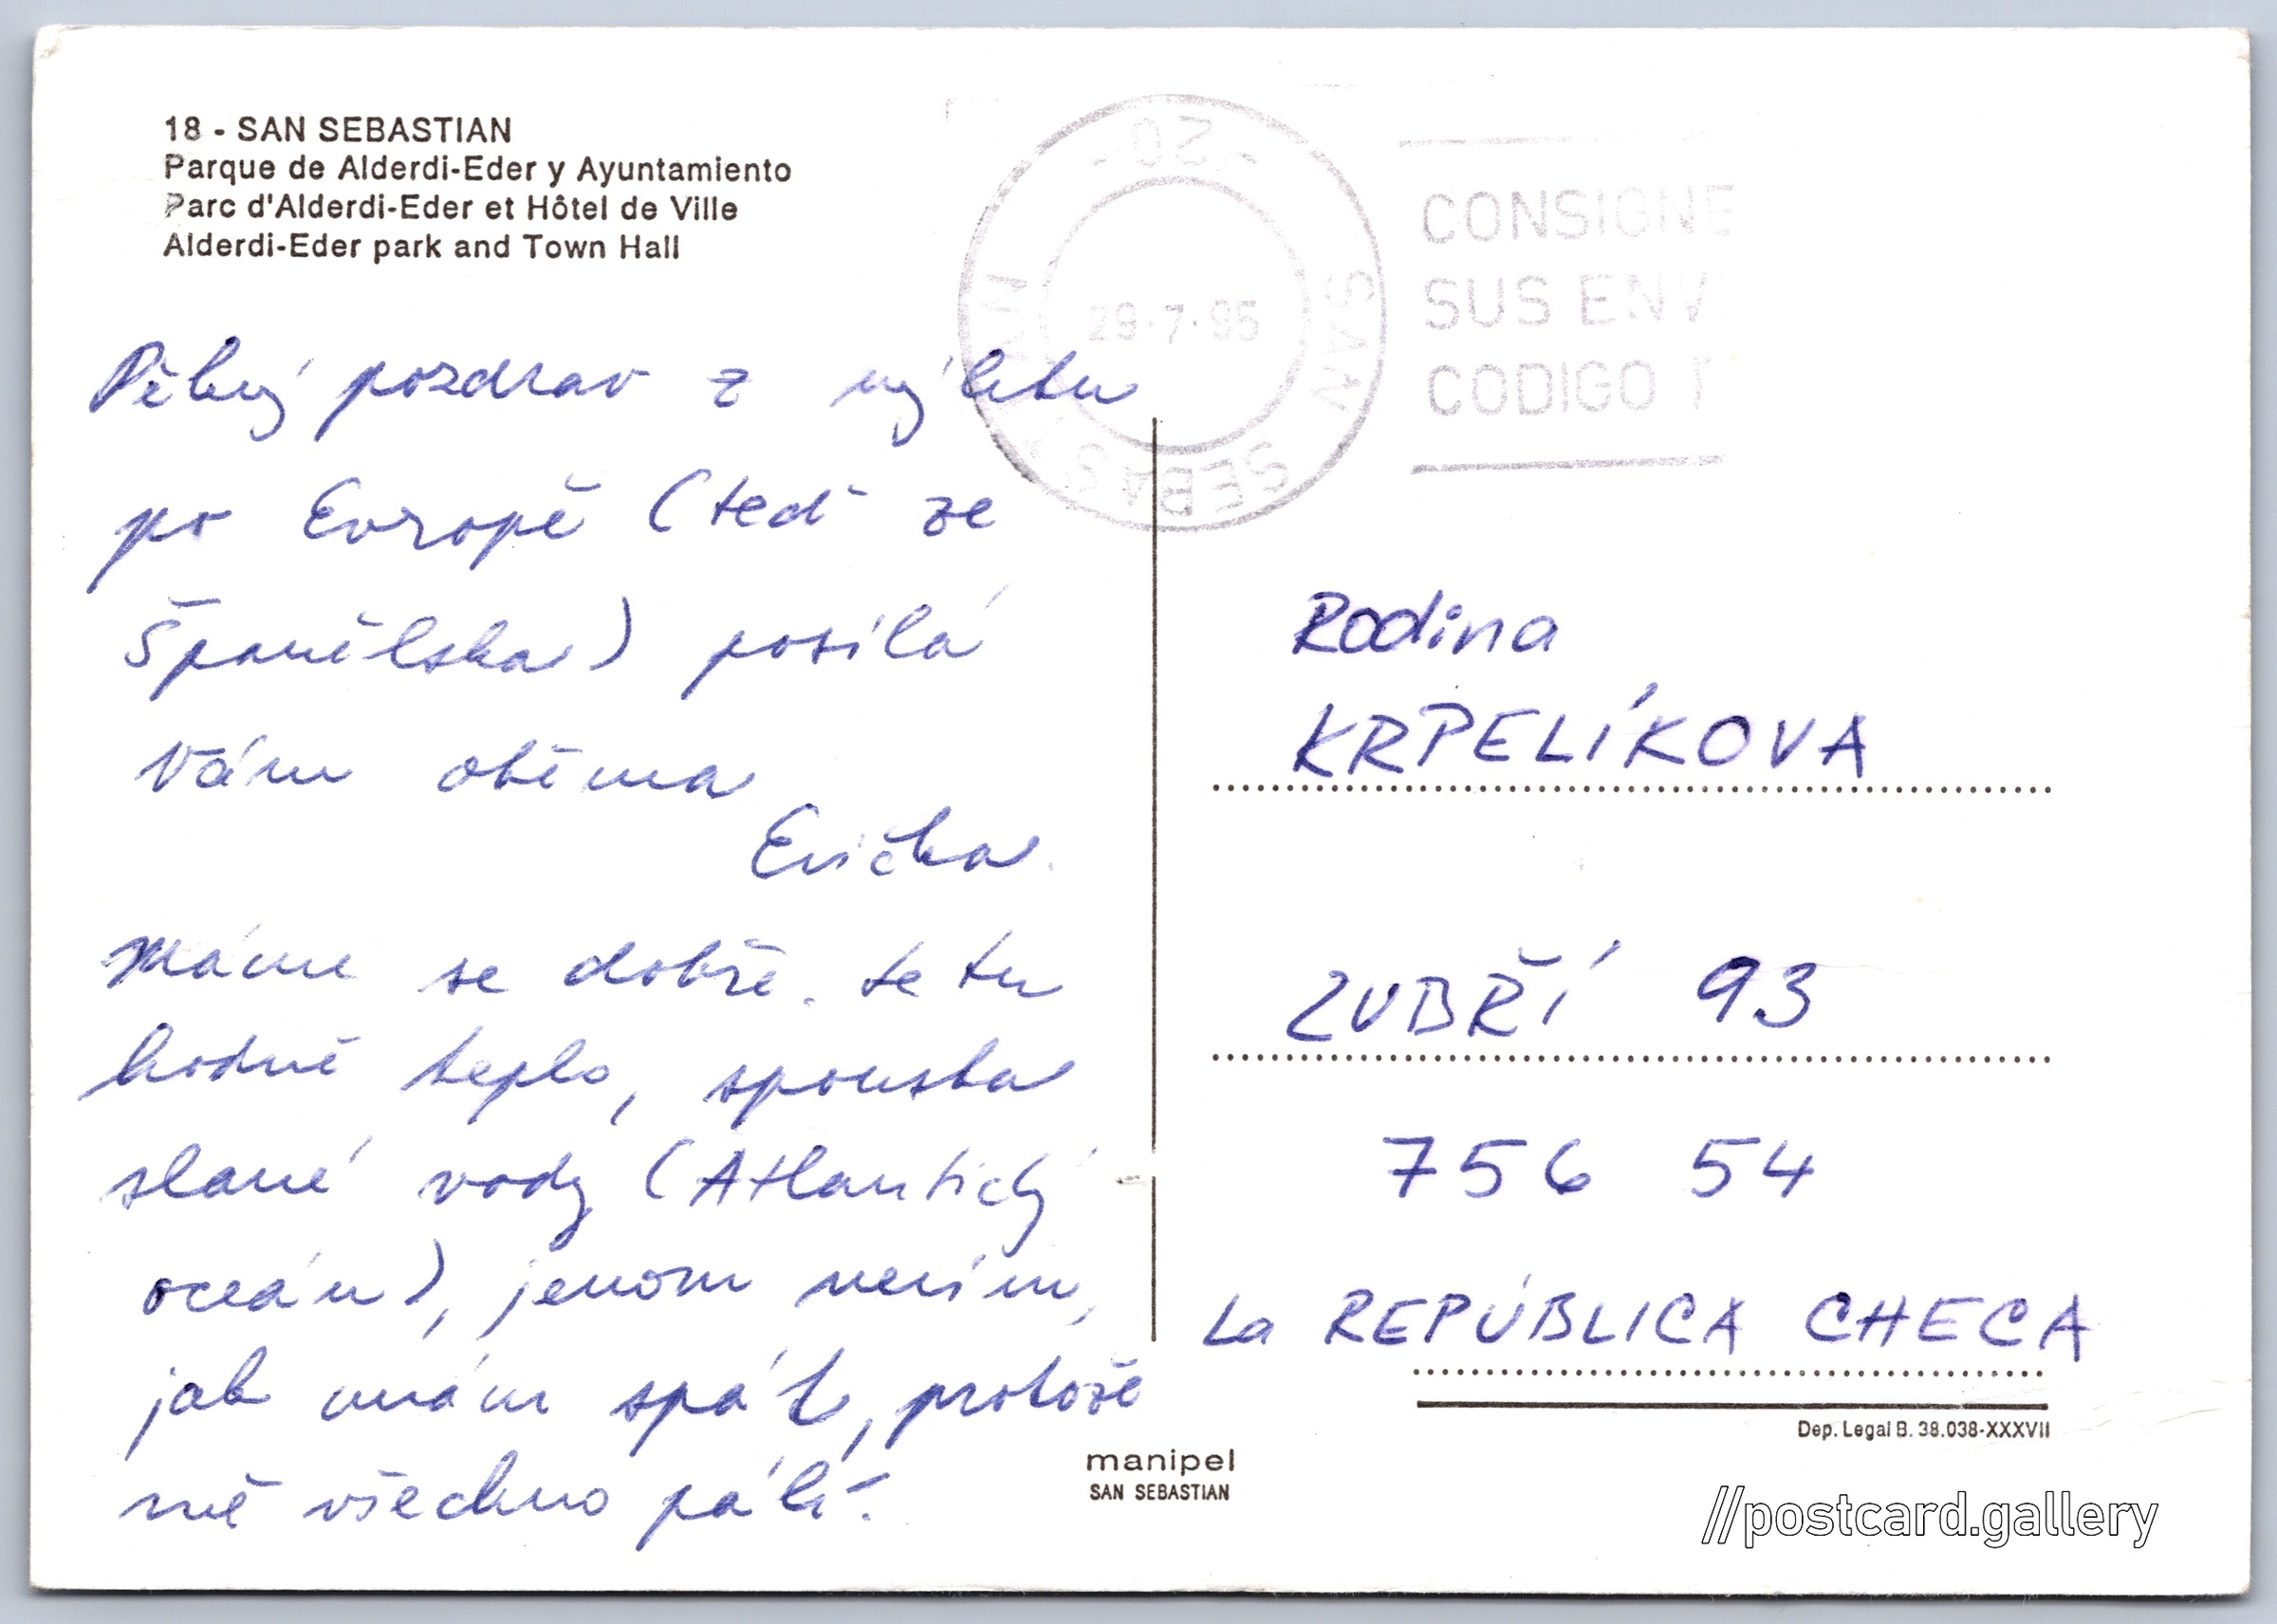 18 - SAN SEBASTIAN
Parque de Alderdi-Eder y Ayuntamiento
Parc d'Alderdi-Eder et Hôtel de Ville
Alderdi-Eder park and Town Hall
Pěkný pozdrav z výletu
po Evropě (teď ze
Španělska) posílá
Vám oběma
Evička.
Máme se dobře. Je tu
hodně teplo, spousta
slané vody (Atlantický
oceán), jenom nevím,
jak mám spát, protože
mě všechno pálí.
- 20 -
SAN SEBASTIAN
29-7-95
CONSIGNE
SUS ENV
CODIGO
Rodina
KRPELÍKOVA
ZUBŘÍ 93
756 54
La REPÚBLICA CHECA
Dep. Legal B. 38.038-XXXVII
manipel
SAN SEBASTIAN
//postcard.gallery